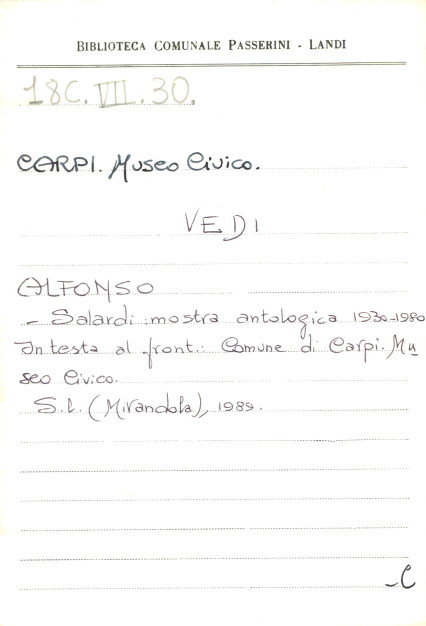 BIBLIOTECA COMUNALE PASSERINI - LANDI
18C. VII. 30.
CARPI. Museo Civico.
VEDI
ALFONSO
- Salardi : mostra antologica 1930-1980
In testa al front.: Comune di Carpi. Mu
seo Civico.
S.l. (Mirandola), 1989.
-C